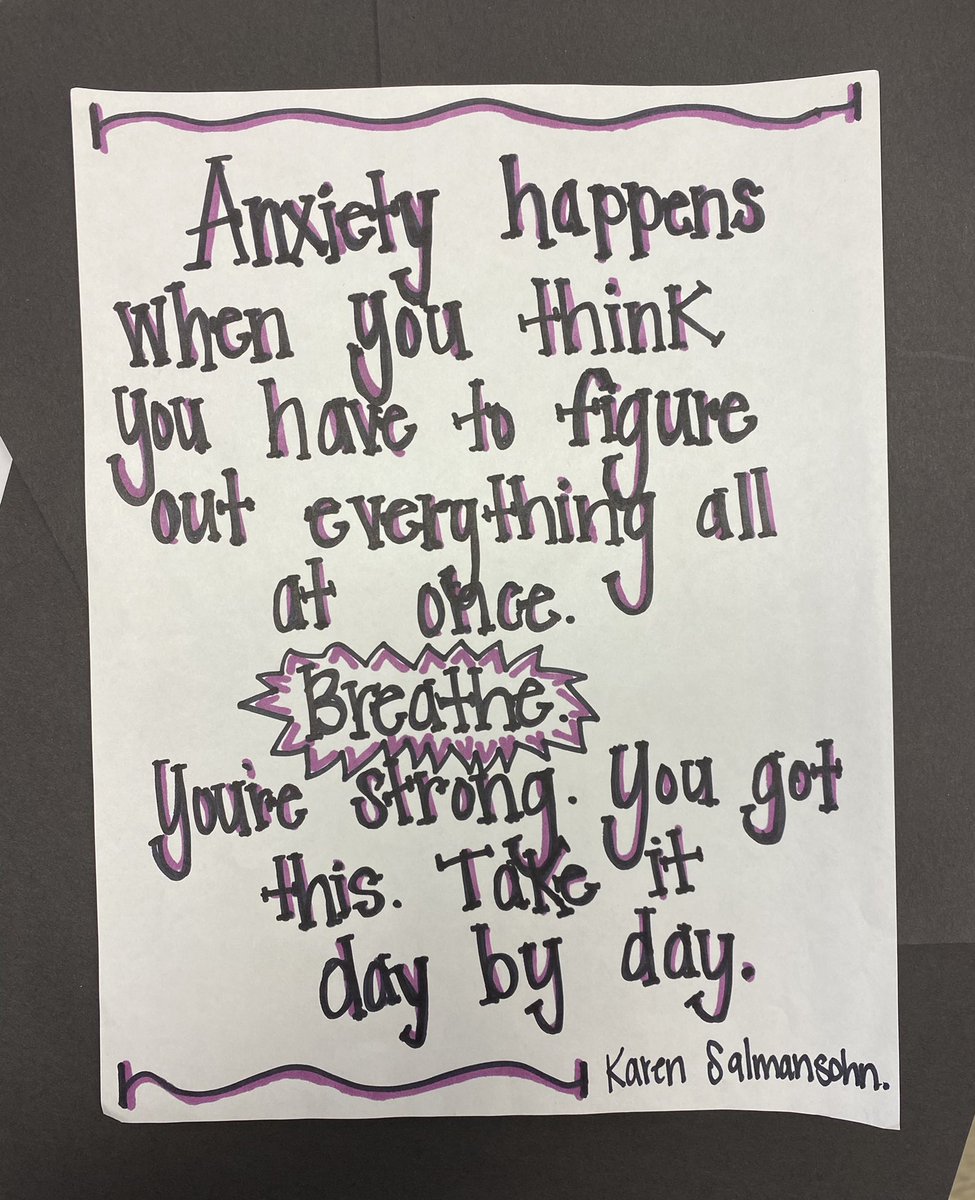 Anxiety happens
when you think
you have to figure
out everything all
at once.
Breathe.
You're strong. You got
this. Take it
day by day.
Karen Salmansohn.